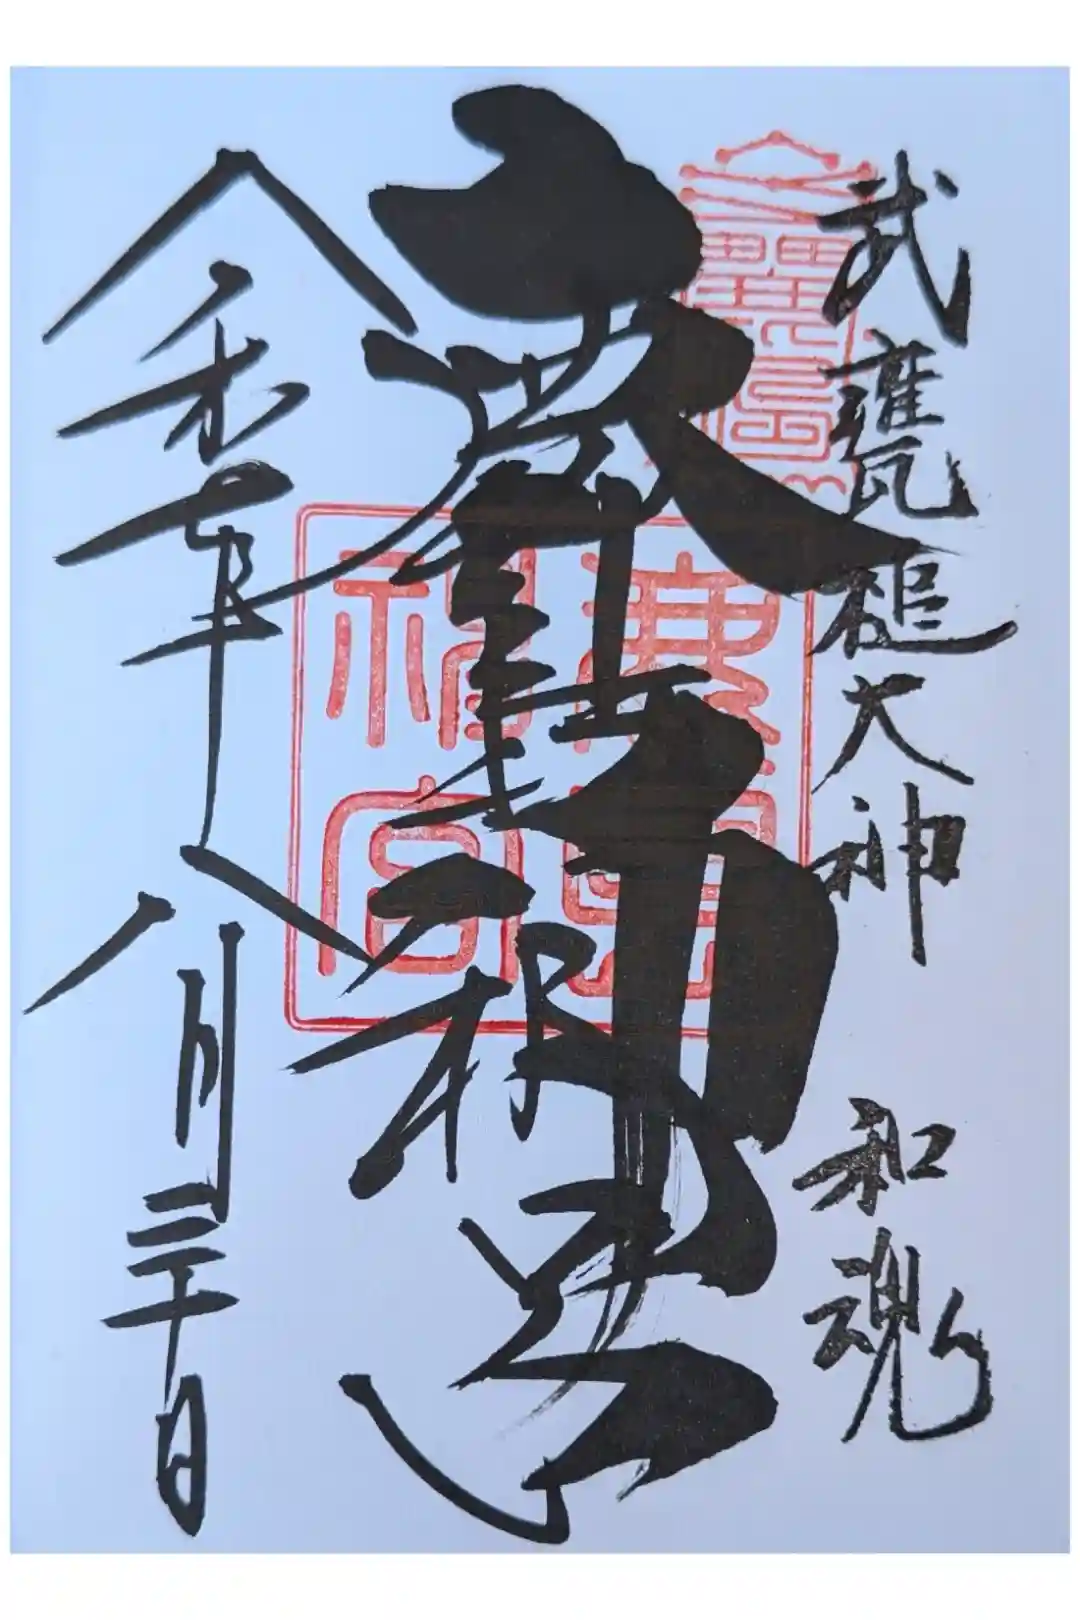 武甕槌大神　和魂
鹿島神宮
令和年八月三十日
鹿島神宮